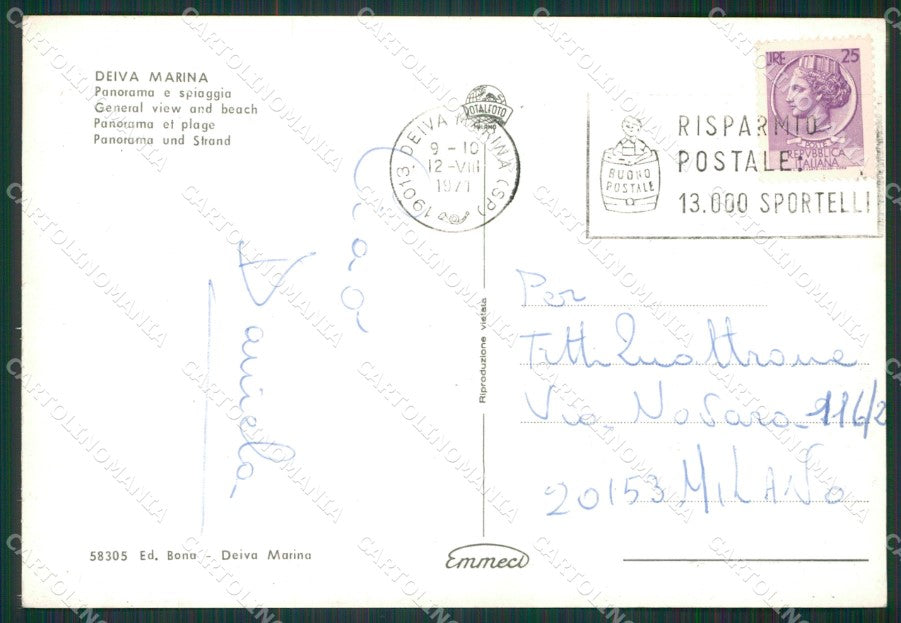 DEIVA MARINA
Panorama e spiaggia
General view and beach
Panorama et plage
Panorama und Strand
ROTALFOTO
MILANO
19013 DEIVA MARINA (SP)
9-10
12-VIII
1971
BUONO
POSTALE
RISPARMIO
POSTALE:
13.000 SPORTELLI
LIRE 25
POSTE
REPVBBLICA
ITALIANA
Ciao
Daniela
Riproduzione vietata
Per
Titti Quattrone
Via Novara 116/2
20153 MILANO
58305 Ed. Bona - Deiva Marina
Emmeci
CARTOLINOMANIA